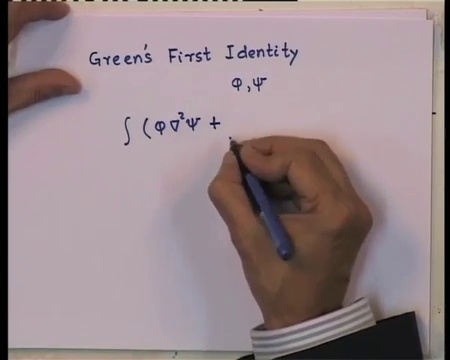 Green's First Identity
φ, ψ
∫ (φ ∇²ψ +